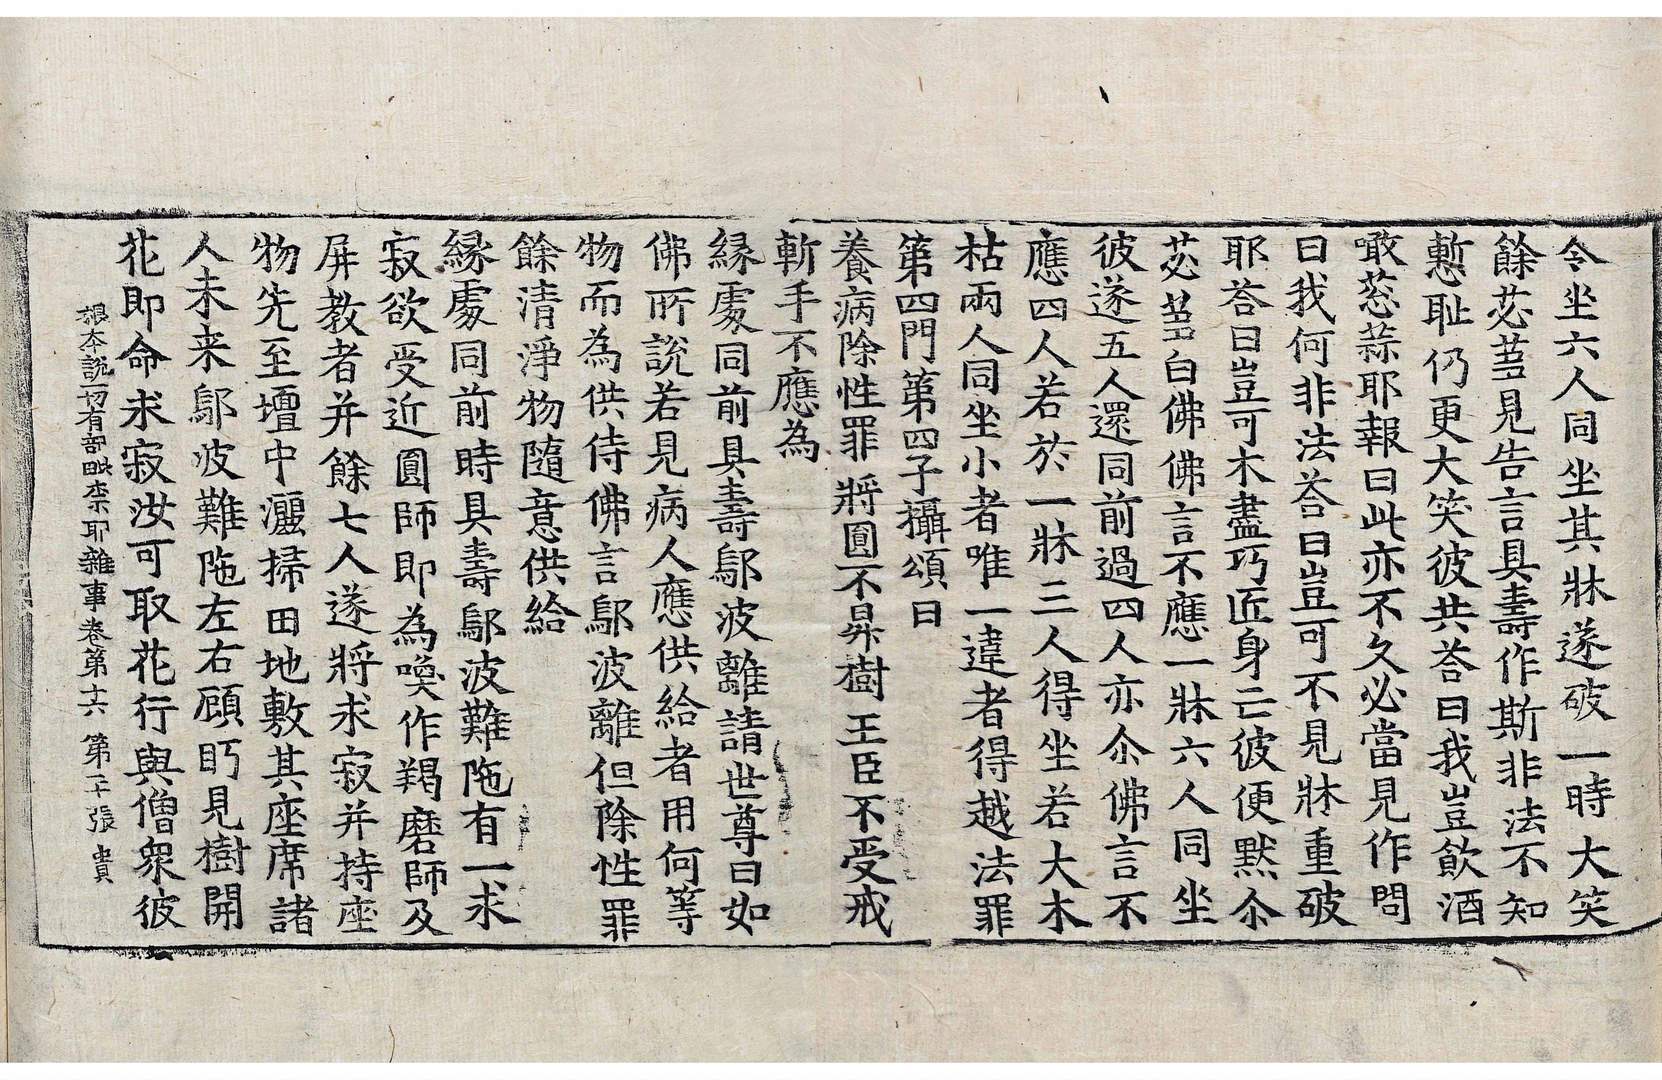 令坐六人同坐其牀遂破一時大笑
餘苾蒭見告言具壽作斯非法不知
慙耻仍更大笑彼共荅曰我豈飲酒
噉葱蒜耶報曰此亦不久必當見作問
曰我何非法荅曰豈可不見牀重破
耶荅曰豈可木盡巧匠身亡彼便默尒
苾蒭白佛佛言不應一牀六人同坐
彼遂五人還同前過四人亦尒佛言不
應四人若於一牀三人得坐若大木
枯兩人同坐小者唯一違者得越法罪
第四門第四子攝頌曰
養病除性罪 將圓不昇樹 王臣不受戒
斬手不應為
縁處同前具壽鄔波離請世尊曰如
佛所說若見病人應供給者用何等
物而為供侍佛言鄔波離但除性罪
餘清淨物隨意供給
縁處同前時具壽鄔波難陁有一求
寂欲受近圓師即為喚作羯磨師及
屏教者并餘七人遂將求寂并持座
物先至壇中灑掃田地敷其座席諸
人未来鄔波難陁左右顧眄見樹開
花即命求寂汝可取花行與僧衆彼
根本說一切有部毗柰耶雜事卷第十六 第二十張 貴